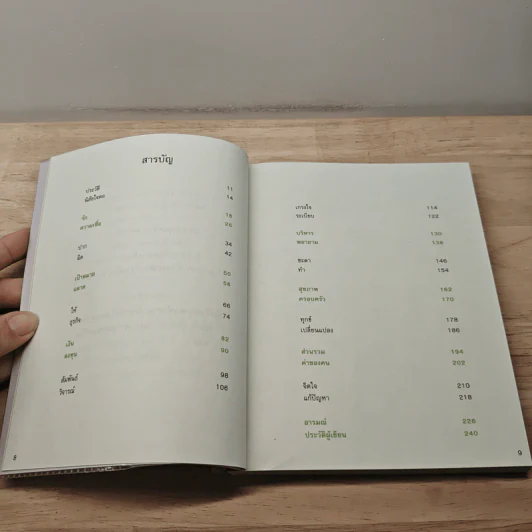 สารบัญ
ประวัติ 11
นิสัยใจคอ 14
รัก 18
ความเชื่อ 26
ปาก 34
ผิด 42
เป้าหมาย 50
ฉลาด 58
ให้ 66
ธุรกิจ 74
เงิน 82
ลงทุน 90
สัมพันธ์ 98
วิจารณ์ 106
8
เกรงใจ 114
ระเบียบ 122
บริหาร 130
พยายาม 138
ชะตา 146
ท้า 154
สุขภาพ 162
ครอบครัว 170
ทุกข์ 178
เปลี่ยนแปลง 186
ส่วนรวม 194
ค่าของคน 202
จิตใจ 210
แก้ปัญหา 218
อารมณ์ 226
ประวัติผู้เขียน 240
9